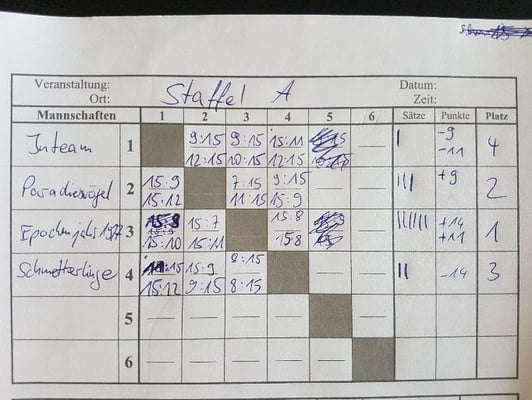 Veranstaltung: Staffel A Datum:
Ort: Zeit:
Mannschaften 1 2 3 4 5 6 Sätze Punkte Platz
Inteam 1 9:15 9:15 15:11 — I -9 4
12:15 10:15 12:15 -11
Paradiesvögel 2 15:9 7:15 9:15 — — III +9 2
15:12 11:15 15:9
Epochenjahr 1977 3 15:7 15:8 — IIIIII +14 1
15:10 15:11 15:8 +11
Schmetterlinge 4 15:9 8:15 — — II -14 3
15:12 9:15 8:15
5 — — — — —
6 — — — — —